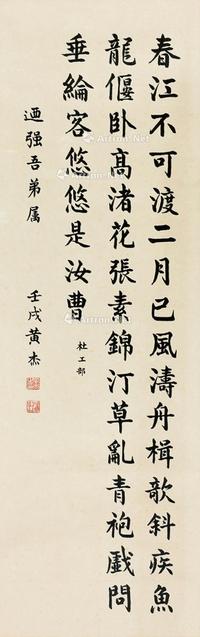 春江不可渡二月已風濤舟楫欹斜疾魚
龍偃臥高渚花張素錦汀草亂青袍戲問
垂綸客悠悠是汝曹
杜工部
迺强吾弟属
壬戌黄杰